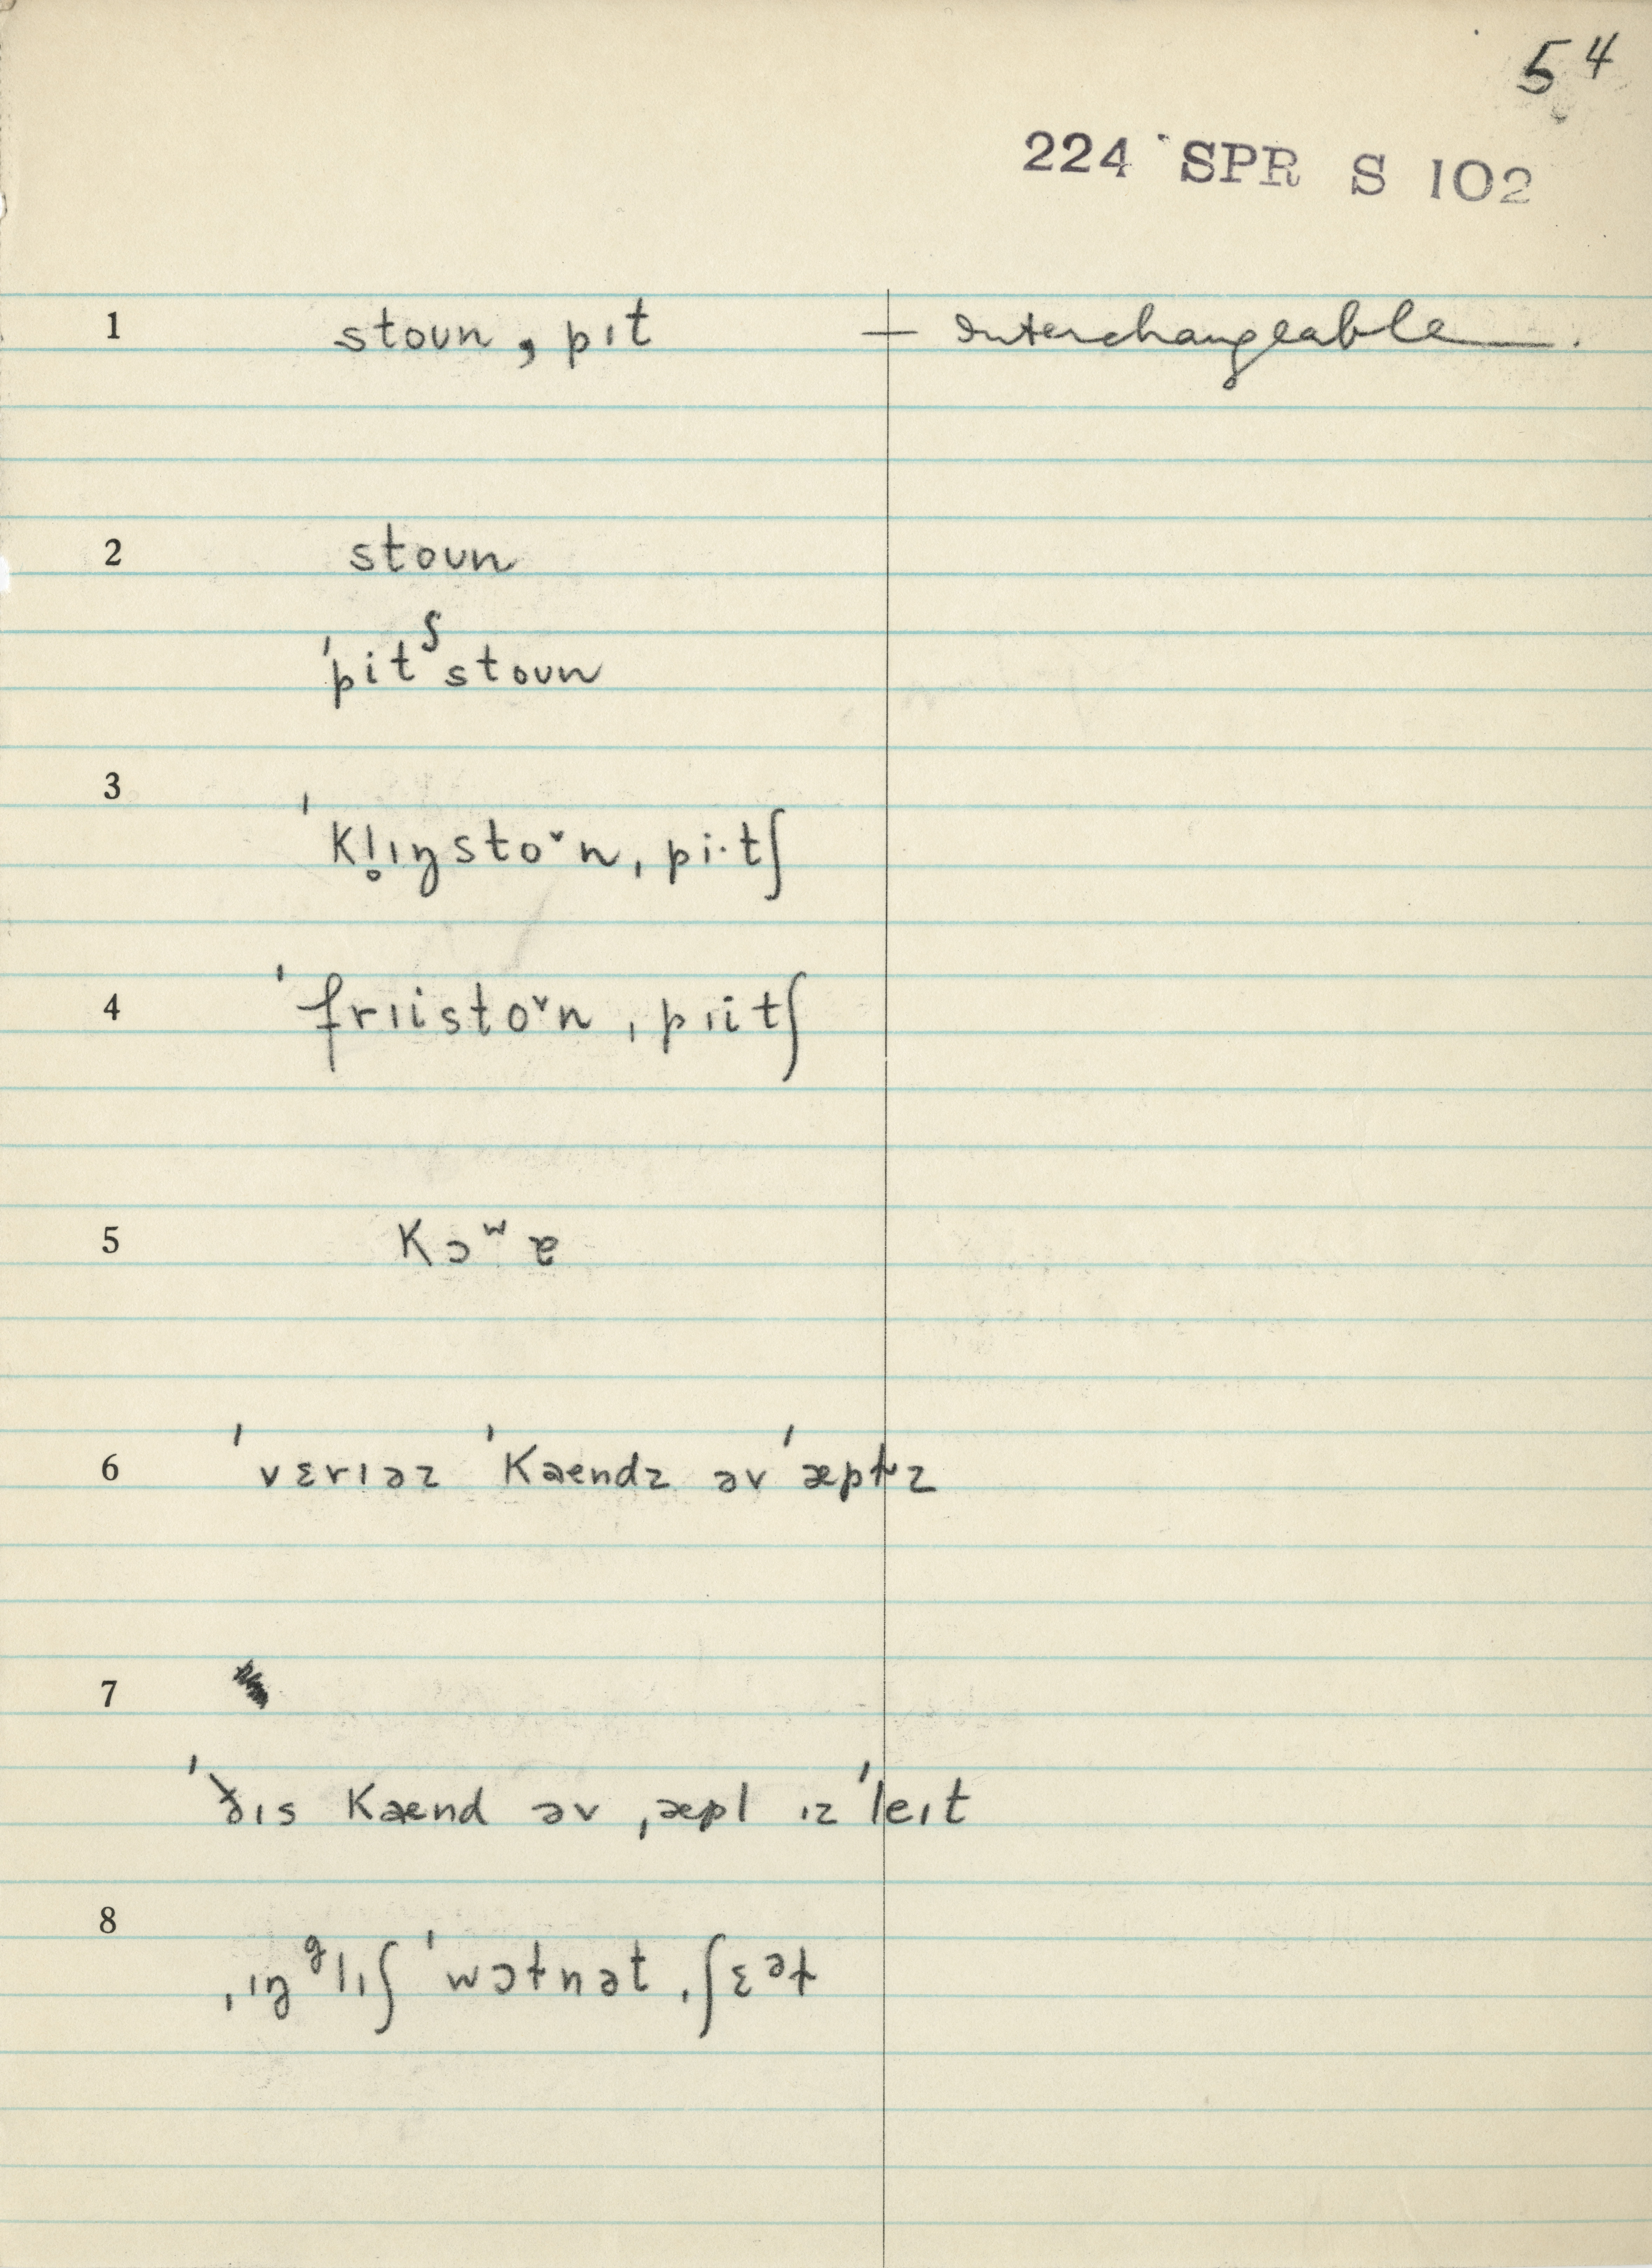 54
224 SPR S 102
1 stoun, pɪt — interchangeable.
2 stoun
ˈpitʃstoun
3 ˈkl̥ɪŋstoᵛn, pi·tʃ
4 ˈfrɪistoᵛn, pɪitʃ
5 kɔʷɐ
6 ˈvɛrɪəz ˈkaendz əv ˈæpɫz
7
ˈðɪs kaend əv ˌæpl ɪz ˈleɪt
8 ˌɪŋᵍlɪʃ ˈwɔɫnət, ʃɛᵊɫ